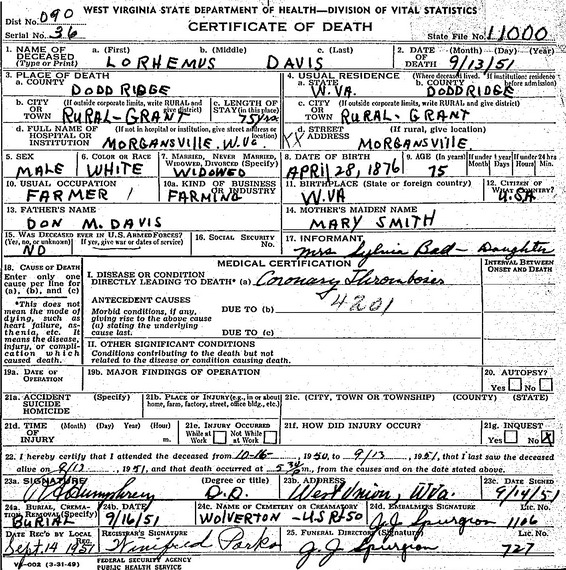 WEST VIRGINIA STATE DEPARTMENT OF HEALTH—DIVISION OF VITAL STATISTICS
Dist No. 090 CERTIFICATE OF DEATH
Serial No. 36 State File No. 11000
1. NAME OF DECEASED (Type or Print) a. (First) b. (Middle) c. (Last) 2. DATE OF DEATH (Month) (Day) (Year)
LORHEMUS DAVIS 9/13/51
3. PLACE OF DEATH 4. USUAL RESIDENCE (Where deceased lived. If institution: residence before admission)
a. COUNTY DODDRIDGE a. STATE W.VA. b. COUNTY DODDRIDGE
b. CITY OR TOWN (If outside corporate limits, write RURAL and give district) c. LENGTH OF STAY (in this place) c. CITY OR TOWN (If outside corporate limits, write RURAL and give district)
RURAL-GRANT 75yrs RURAL-GRANT
d. FULL NAME OF HOSPITAL OR INSTITUTION (If not in hospital or institution, give street address or location) d. STREET ADDRESS (If rural, give location)
MORGANSVILLE, W.VA. XX MORGANSVILLE
5. SEX 6. COLOR OR RACE 7. MARRIED, NEVER MARRIED, WIDOWED, DIVORCED (Specify) 8. DATE OF BIRTH 9. AGE (In years) If under 1 year Months Days If under 24 hrs Hours Min.
MALE WHITE WIDOWED APRIL 28, 1876 75
10. USUAL OCCUPATION 10a. KIND OF BUSINESS OR INDUSTRY 11. BIRTHPLACE (State or foreign country) 12. CITIZEN OF WHAT COUNTRY?
FARMER FARMING W.VA U.S.A
13. FATHER'S NAME 14. MOTHER'S MAIDEN NAME
DON M. DAVIS MARY SMITH
15. WAS DECEASED EVER IN U.S. ARMED FORCES? (Yes, no, or unknown) If yes, give war or dates of service) 16. SOCIAL SECURITY NO. 17. INFORMANT
NO Mrs Sylvia - Daughter
MEDICAL CERTIFICATION INTERVAL BETWEEN ONSET AND DEATH
18. CAUSE OF DEATH
Enter only one cause per line for (a), (b), and (c)
I. DISEASE OR CONDITION DIRECTLY LEADING TO DEATH* (a) Coronary Thrombosis
4201
*This does not mean the mode of dying, such as heart failure, asthenia, etc. It means the disease, injury, or complication which caused death.
ANTECEDENT CAUSES
Morbid conditions, if any, giving rise to the above cause (a) stating the underlying cause last.
DUE TO (b)
DUE TO (c)
II. OTHER SIGNIFICANT CONDITIONS
Conditions contributing to the death but not related to the disease or condition causing death.
19a. DATE OF OPERATION 19b. MAJOR FINDINGS OF OPERATION 20. AUTOPSY? Yes No
21a. ACCIDENT SUICIDE HOMICIDE (Specify) 21b. PLACE OF INJURY (e.g., in or about home, farm, factory, street, office bldg., etc.) 21c. (CITY, TOWN, OR TOWNSHIP) (COUNTY) (STATE)
21d. TIME OF INJURY (Month) (Day) (Year) (Hour) m. 21e. INJURY OCCURRED While at Work Not While at Work 21f. HOW DID INJURY OCCUR? 21g. INQUEST Yes No X
22. I hereby certify that I attended the deceased from 10-16-, 1950, to 9/13, 1951, that I last saw the deceased
alive on 9/13, 1951, and that death occurred at m., from the causes and on the date stated above.
23a. SIGNATURE (Degree or title) 23b. ADDRESS 23c. DATE SIGNED
Humphrey D.O. West Union, W.Va. 9/14/51
24a. BURIAL, CREMATION, REMOVAL (Specify) 24b. DATE 24c. NAME OF CEMETERY OR CREMATORY 24d. EMBALMER'S SIGNATURE Lic. No.
BURIAL 9/16/51 WOLVERTON - U.S. Rt 50 J.J. Spurgeon 1106
DATE REC'D BY LOCAL REG. REGISTRAR'S SIGNATURE 25. FUNERAL DIRECTOR (Signature) Lic. No.
Sept. 14 1951 Winifred J.J. Spurgeon 727
VS-002 (3-31-49) FEDERAL SECURITY AGENCY
PUBLIC HEALTH SERVICE